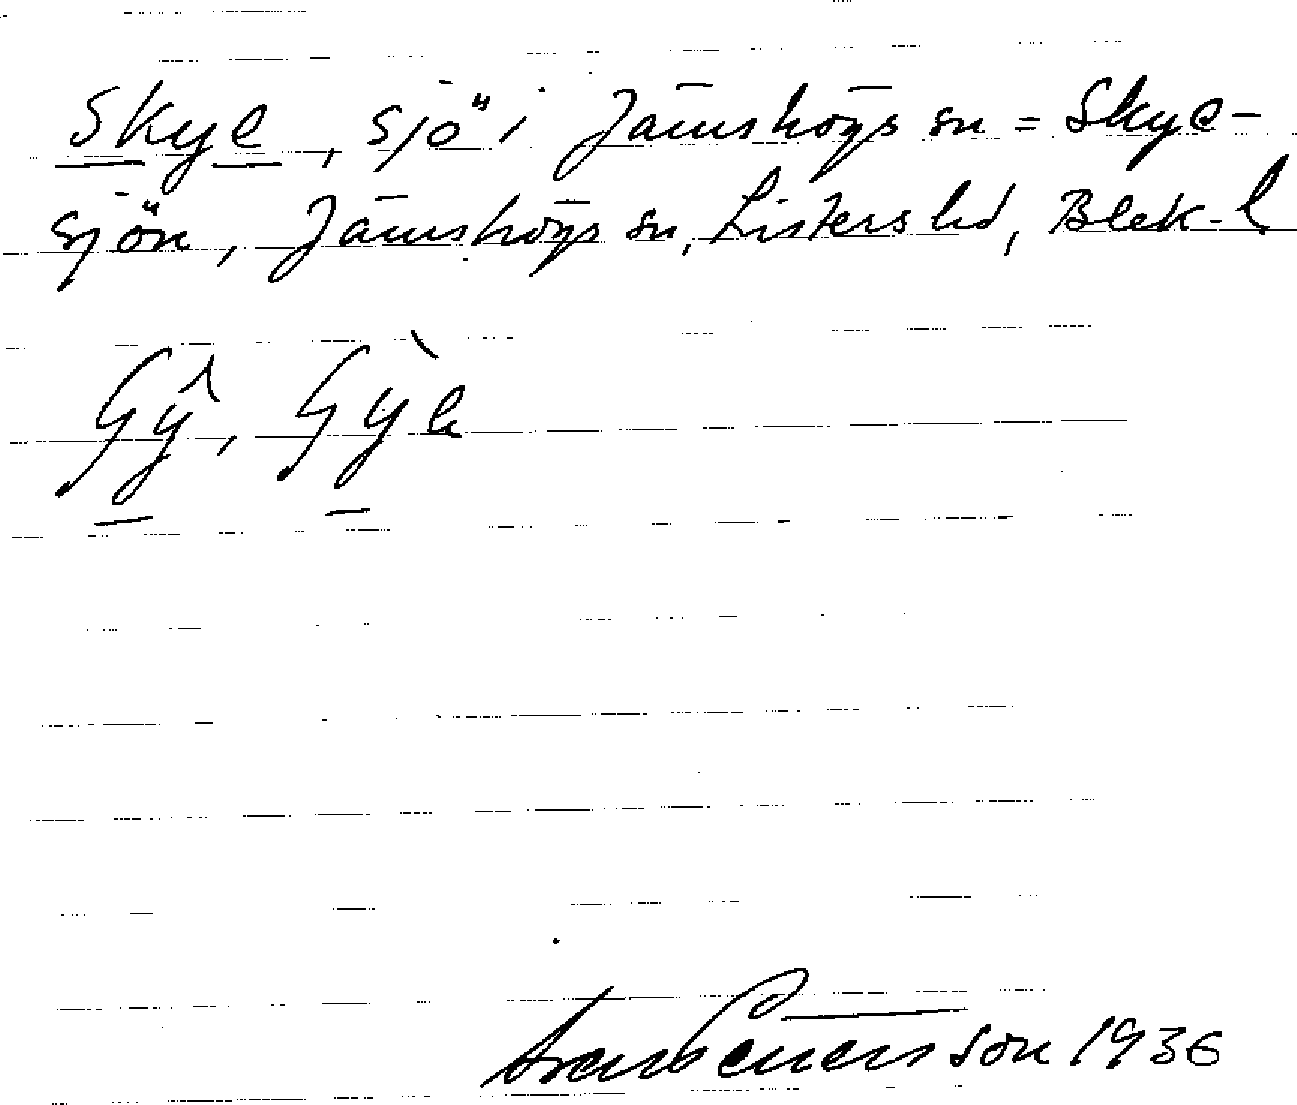 Skye, sjö i Jämshögs sn = Skye-
sjön, Jämshögs sn, Listers hd, Blek. l
Gŷ, Gỳe
1936